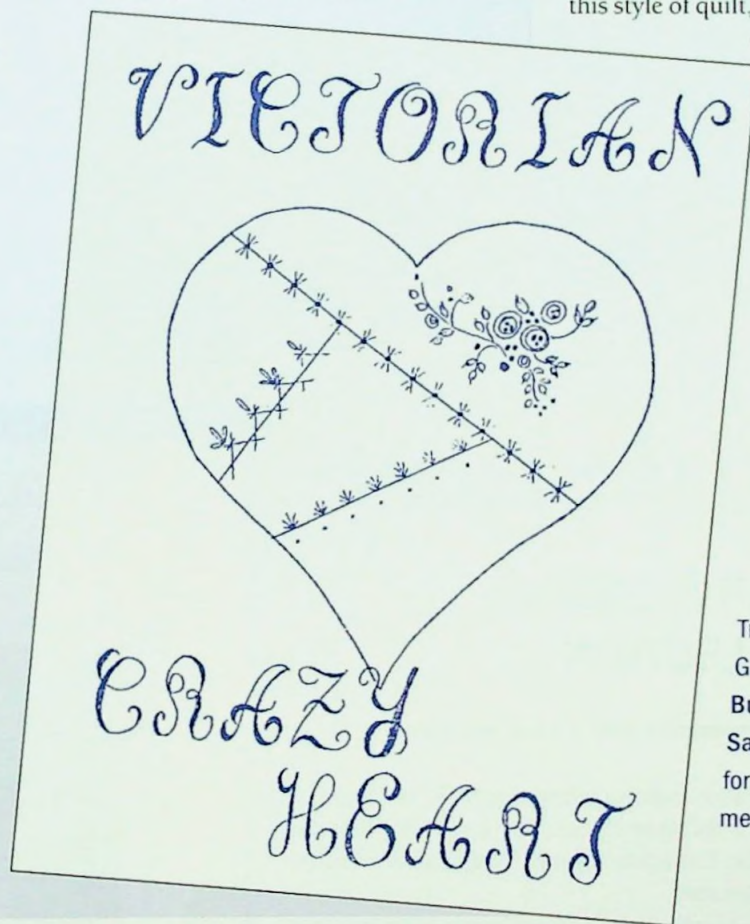 this style of quilt.
VICTORIAN
CRAZY
HEART
for
me